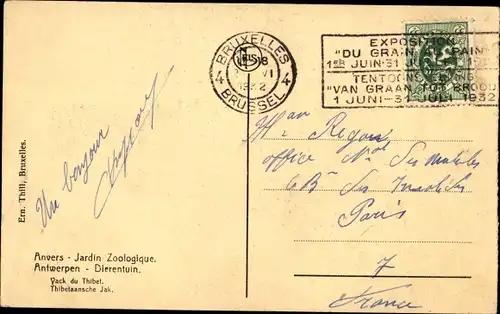 BRUXELLES
BRUSSEL
4 4
VI
1932
EXPOSITION
"DU GRAIN AU PAIN"
1ER JUIN-31 JUIL. 1932
TENTOONSTELLING
"VAN GRAAN TOT BROOD"
1 JUNI-31 JULI 1932
Un bonjour
Ern. Thill, Bruxelles.
Mr Regou
office Nal des meubles
6B des Invalides
Paris
7
France
Anvers - Jardin Zoologique.
Antwerpen - Dierentuin.
Yack du Thibet.
Thibetaansche Jak.